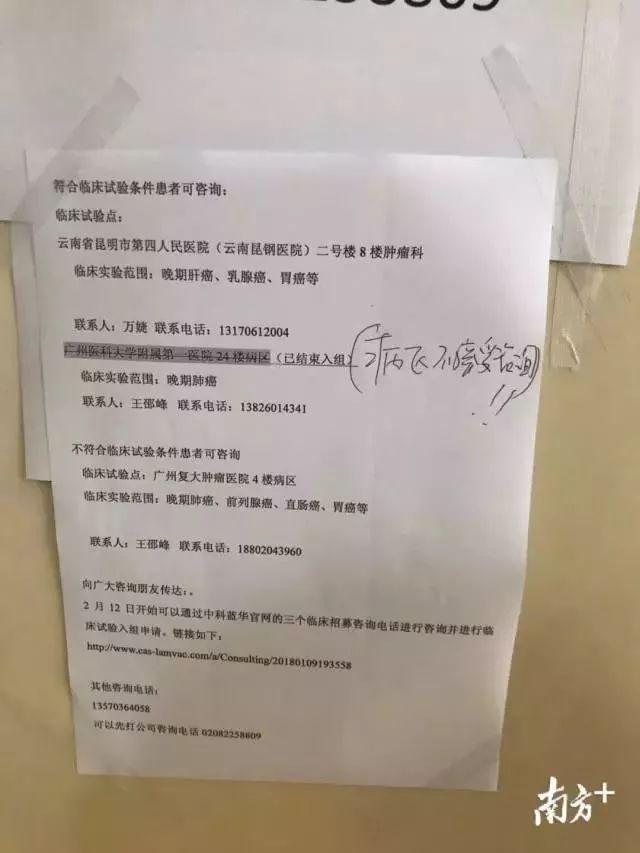 符合临床试验条件患者可咨询:
临床试验点:
云南省昆明市第四人民医院(云南昆钢医院)二号楼 8 楼肿瘤科
临床实验范围:晚期肝癌、乳腺癌、胃癌等
联系人:万婕 联系电话:13170612004
广州医科大学附属第一医院 24 楼病区(已结束入组)
(病区不接受咨询)!!
临床实验范围:晚期肺癌
联系人:王邵峰 联系电话:13826014341
不符合临床试验条件患者可咨询
临床试验点:广州复大肿瘤医院 4 楼病区
临床实验范围:晚期肺癌、前列腺癌、直肠癌、胃癌等
联系人:王邵峰 联系电话:18802043960
向广大咨询朋友传达:。
2 月 12 日开始可以通过中科蓝华官网的三个临床招募咨询电话进行咨询并进行临
床试验入组申请。链接如下:
http://www.cas-lamvac.com/a/Consulting/20180109193558
其他咨询电话:
13570364058
可以先打公司咨询电话 02082258809
南方+